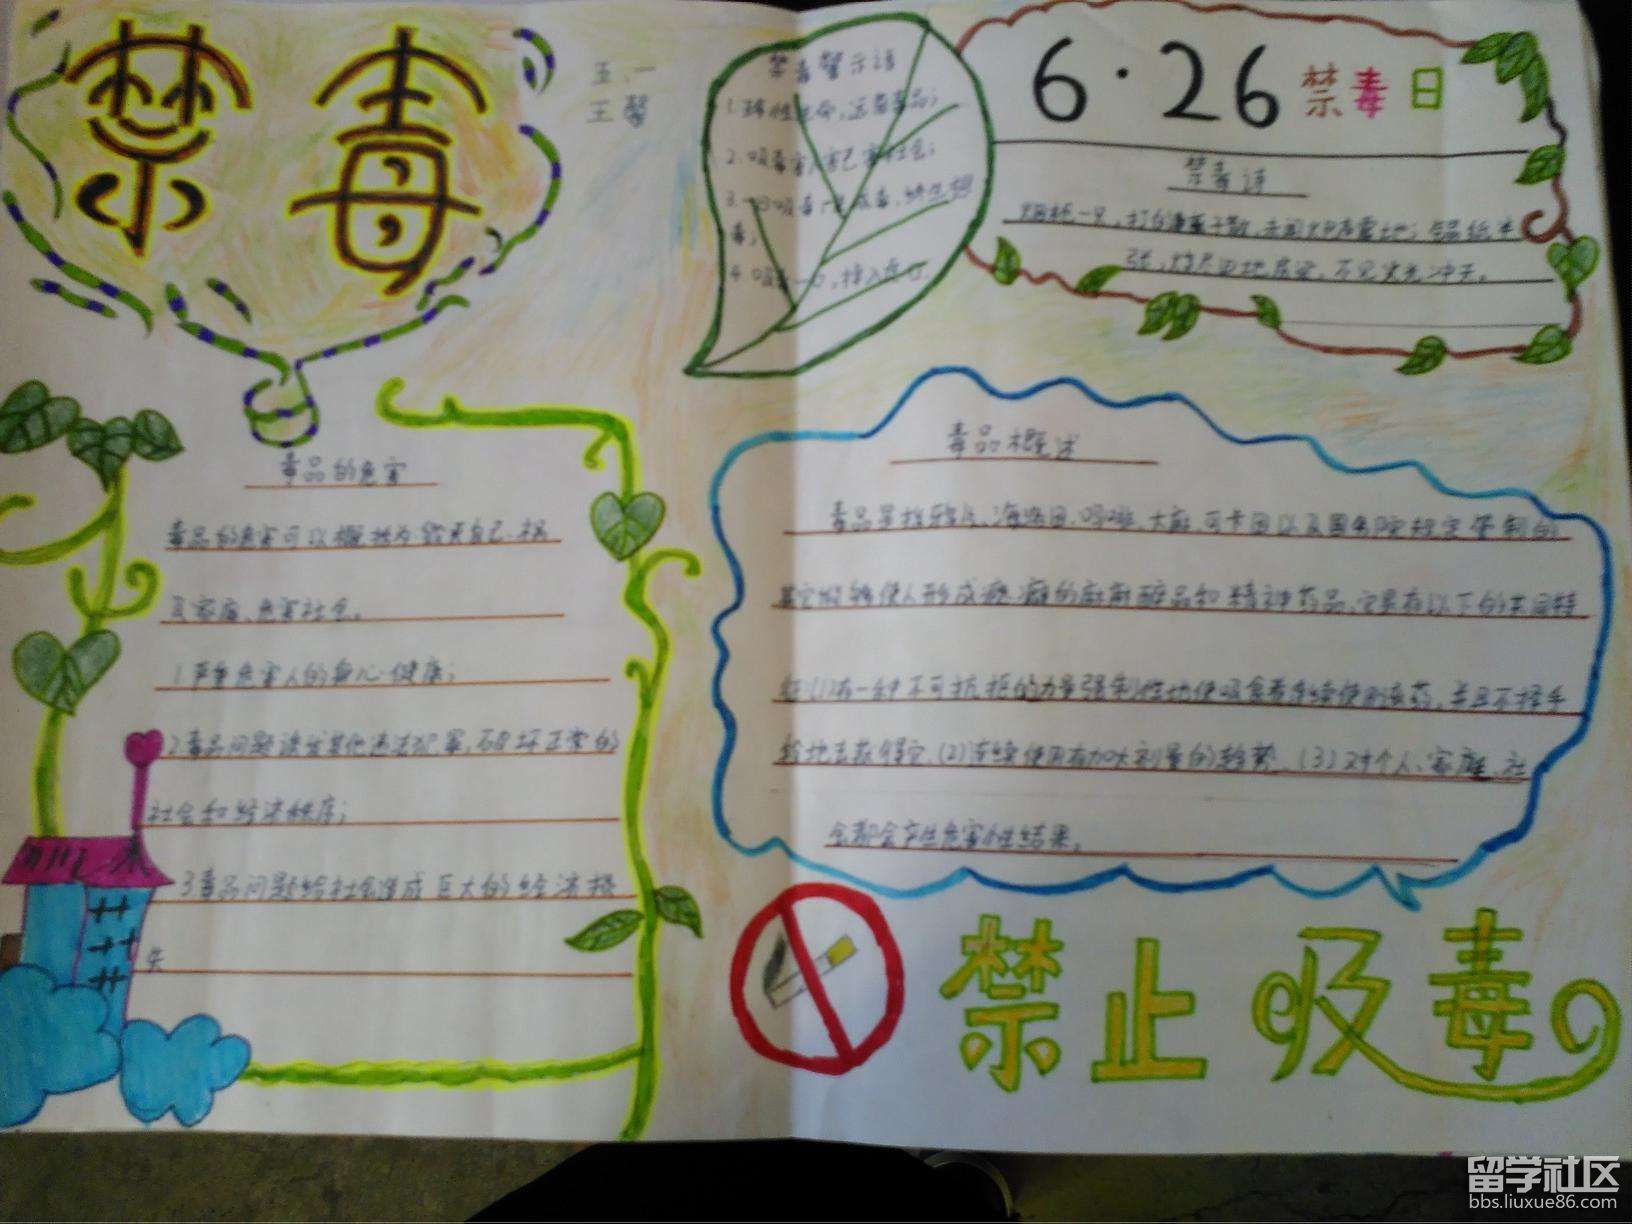 禁毒
五、一
王馨
禁毒警示语
1.珍惜生命,远离毒品;
2.吸毒害人害己害社会;
3.一日吸毒
毒;
4.吸毒一口,掉入虎口.
6·26禁毒日
禁毒诗
烟枪一只,打
张,烧尽田地房梁,不见火光冲天。
毒品的危害
毒品的危害可以概括为:毁灭自己、祸
及家庭、危害社会。
1严重危害人的身心健康;
2毒品问题诱发其他违法犯罪,破坏正常的
社会和经济秩序;
3毒品问题给社会造成巨大的经济损
失
毒品概述
毒品是指鸦片、海洛因、吗啡、大麻、可卡因以及国务院规定管制的
其它能够使人形成瘾癖的麻麻醉品和精神药品,它具有以下的共同特
征:(1)有一种不可抗拒的力量强制性地使吸食者连续使用该药,并且不择手
段地去获得它、(2)连续使用有加大剂量的趋势、(3)对个人、家庭、社
会都会产生危害性结果。
禁止吸毒
留学社区
bbs.liuxue86.com